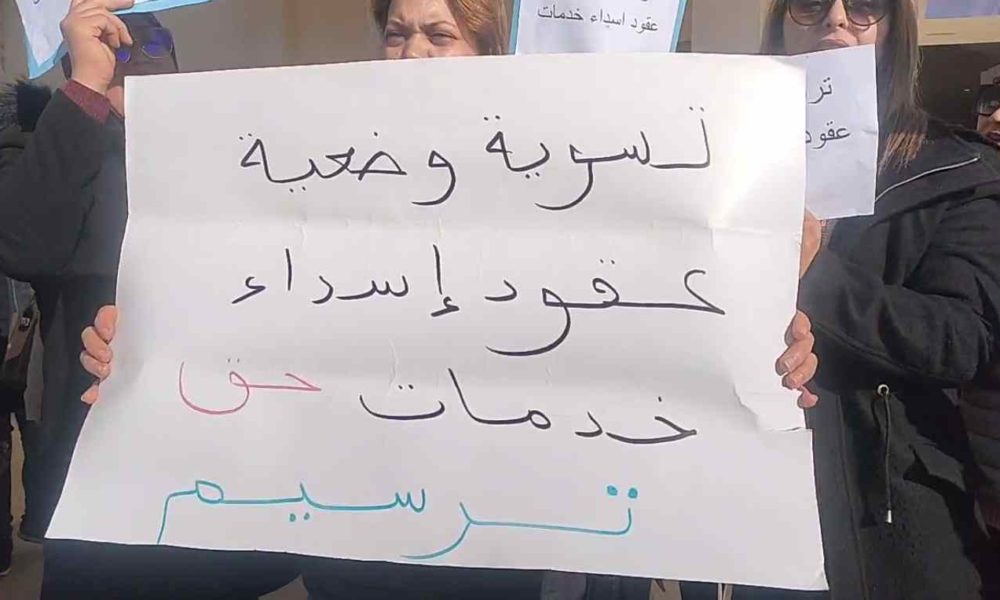 عقود اسداء خدمات
تر
عقود
تسوية وضعية
عقود إسداء
خدمات حق
ترسيم